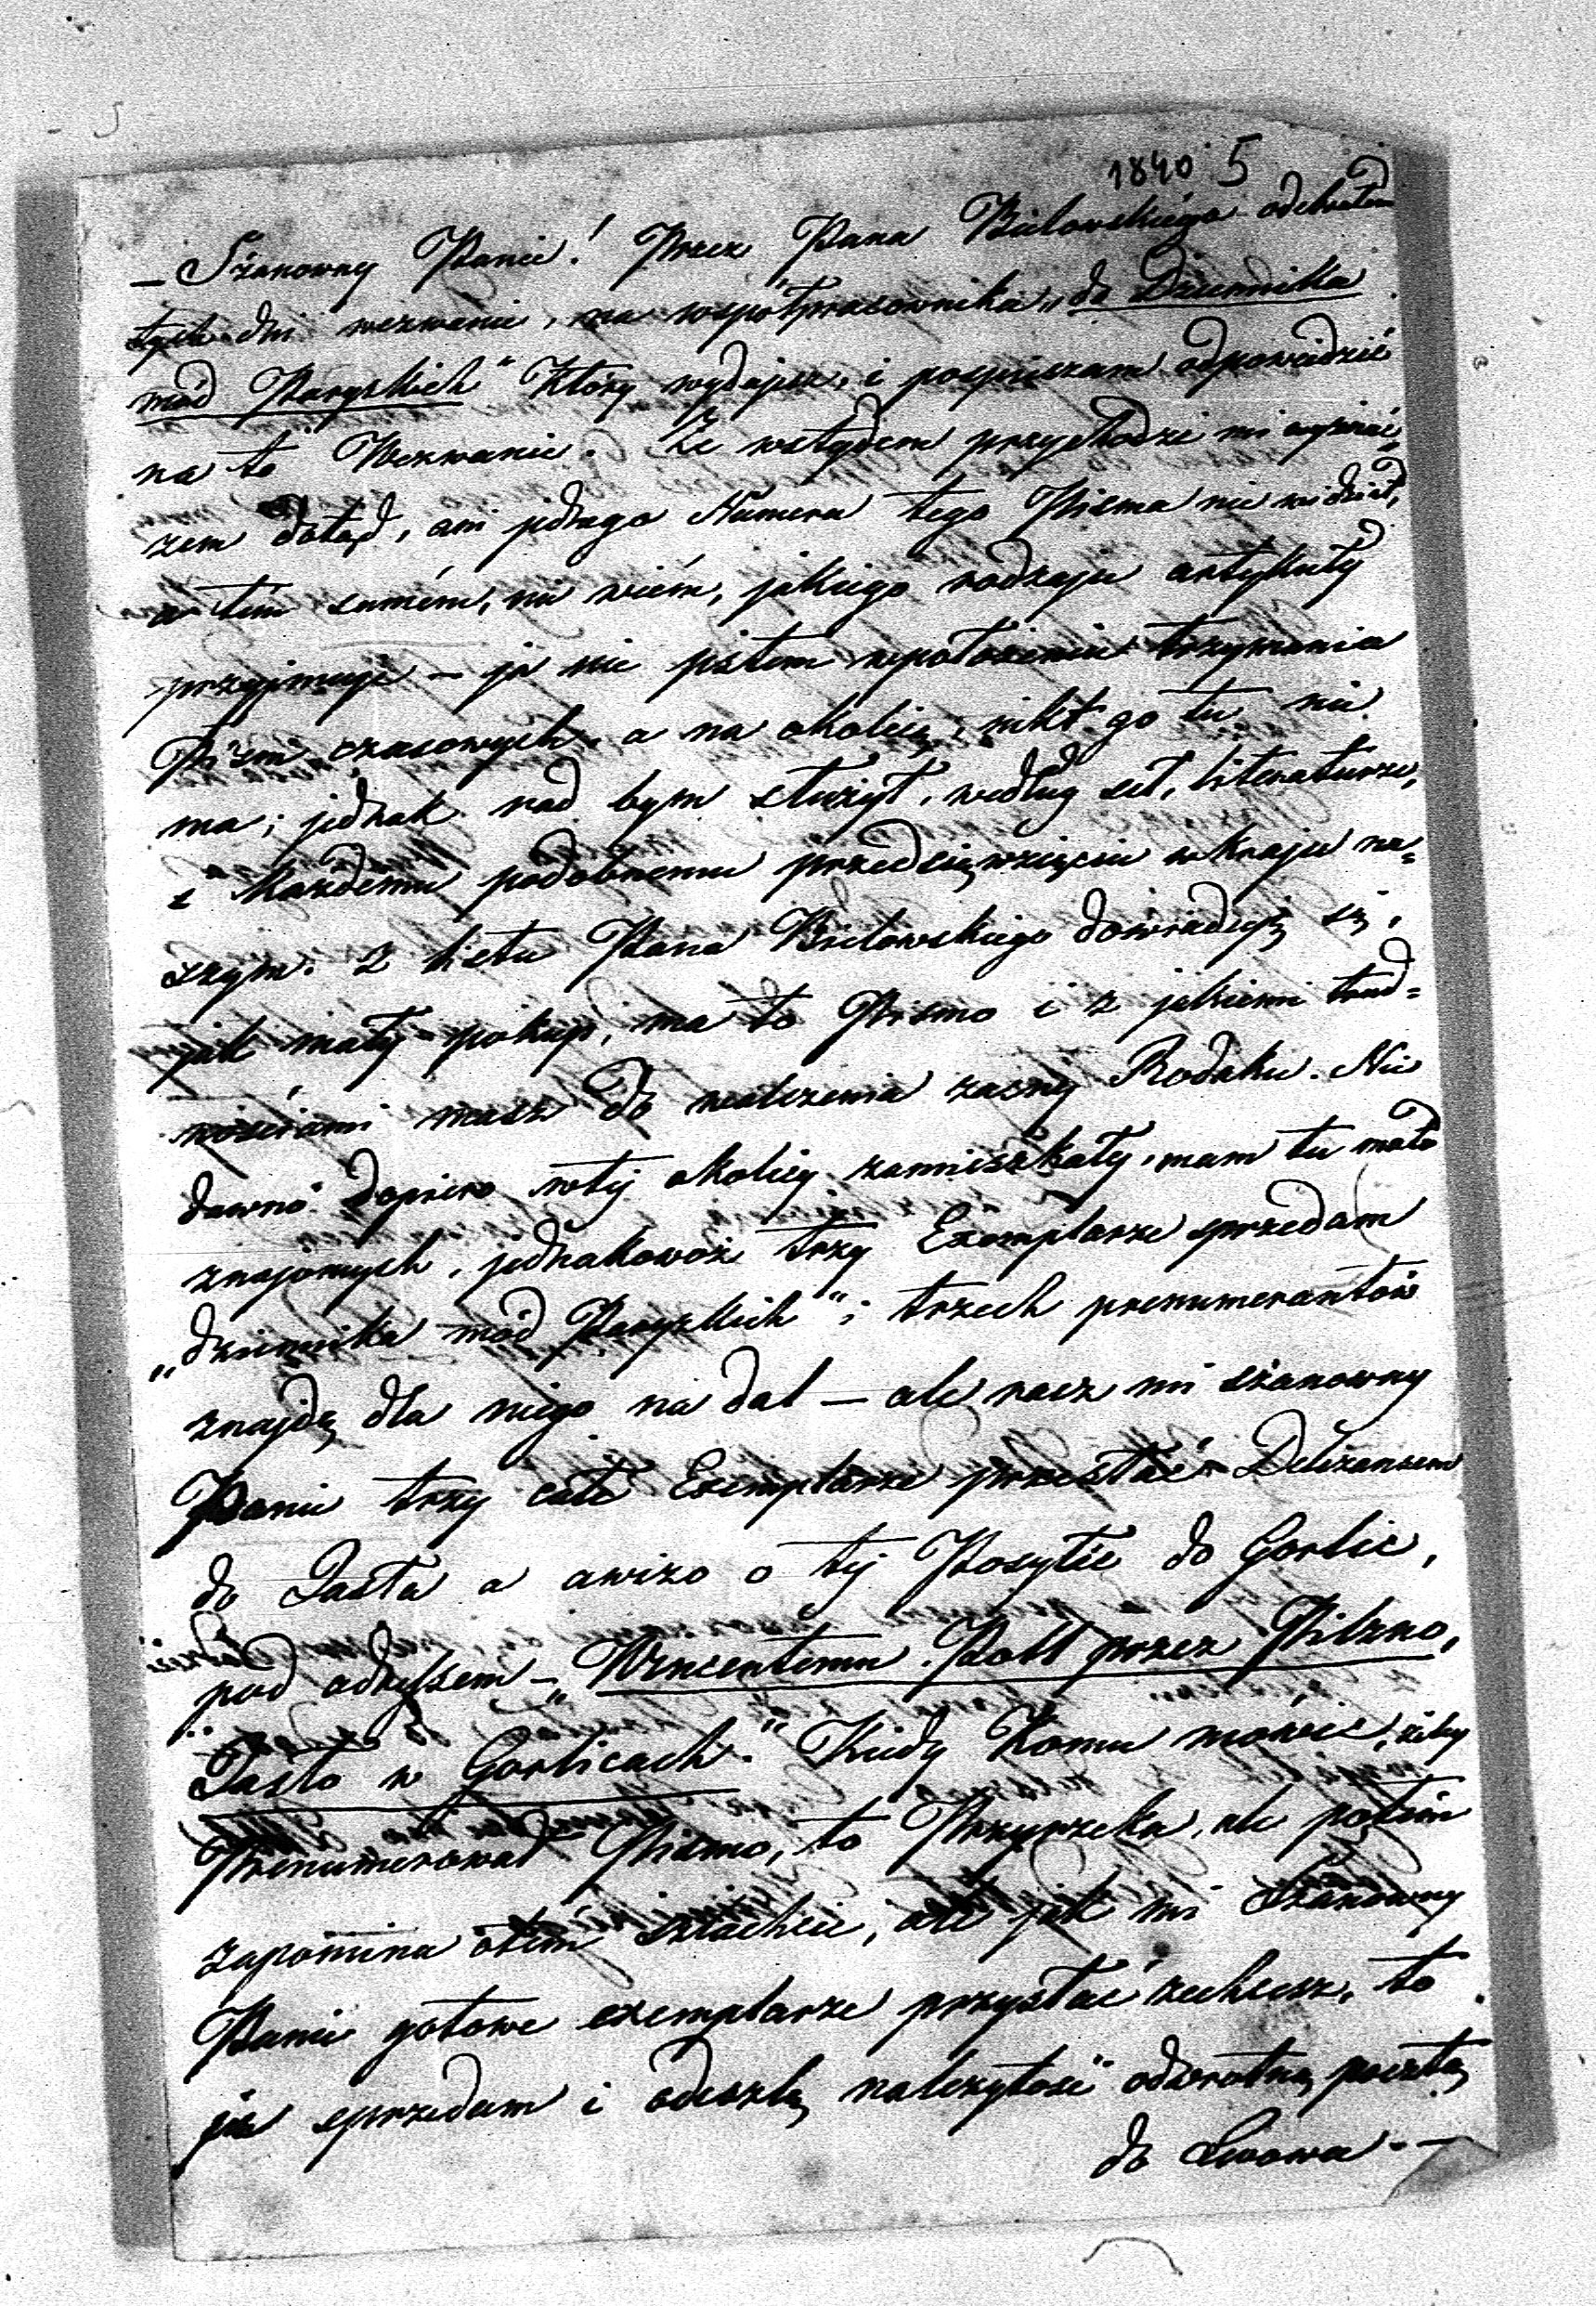 1840 5
— Szanowny Panie! Przez Pana Bielowskiego odebrałem
tych dni wezwanie, na współpracownika „do Dziennika
mód Paryskich" który wydajesz, i pospieszam odpowiedzieć
na to Wezwanie. Ze wstydem przychodzi mi wyznać,
żem dotąd, ani jednego Numeru tego Pisma nie widział,
a tém samém, nie wiém, jakiego rodzaju artykuły
przyjmuje — ja nie jstem wpołożeniu trzymania
Pism czasowych, a na okolicę, nikt go tu nie
ma; jednak rad bym służył, według sił, literaturze,
i każdemu podobnemu przedsięwzięciu w kraju na=
szym. Z listu Pana Bielowskiego dowiaduję się,
jak mały pokup, ma to Pismo i z jakiemi trud=
nościami masz do walczenia zacny Rodaku. Nie
dawno dopiero wtéj okolicy zamieszkały, mam tu mało
znajomych, jednakowoż trzy Exemplarze sprzedam
„dziennika mód Paryzkich"; trzech prenumerantów
znajdę dla niego na dal — ale racz mi szanowny
Panie trzy całe Exemplarze przesłać Deliżansem
do Jasła a awizo o téj Posyłce do Gorlic,
pod adresem — „Wincentemu Poll przez Pilzno,
Jasło w Gorlicach." Kiedy komu mówić, żeby
Prenumerował Pismo, to Przyrzeka, ale potém
zapomina otém szlachcic, ale jak mi Szanowny
Panie gotowe exemplarze przysłać zechcesz, to
je sprzedam i odeszlę należytość odwrotną pocztą
do Lwowa. —